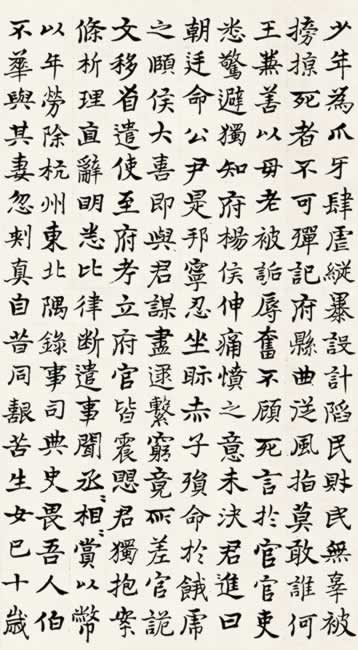 少年為爪牙肆虐縱暴設計陷民財民無辜被
搒掠死者不可殫記府縣曲從風指莫敢誰何
王兼善以母老被詬辱奮不顧死言於官官吏
悉驚避獨知府楊侯伸痛憤之意未決君進曰
朝廷命公尹是邦寧忍坐眎赤子殞命於餓虎
之頤侯大喜即與君謀盡逮繫窮竟所差官詭
文移省遣使至府考立府官皆震愳君獨抱案
條析理直辭明悉比律斷遣事聞丞〻相〻賞以幣
以年勞除杭州東北隅錄事司典史畏吾人伯
不華與其妻忽剌真自昔同艱苦生女巳十歲